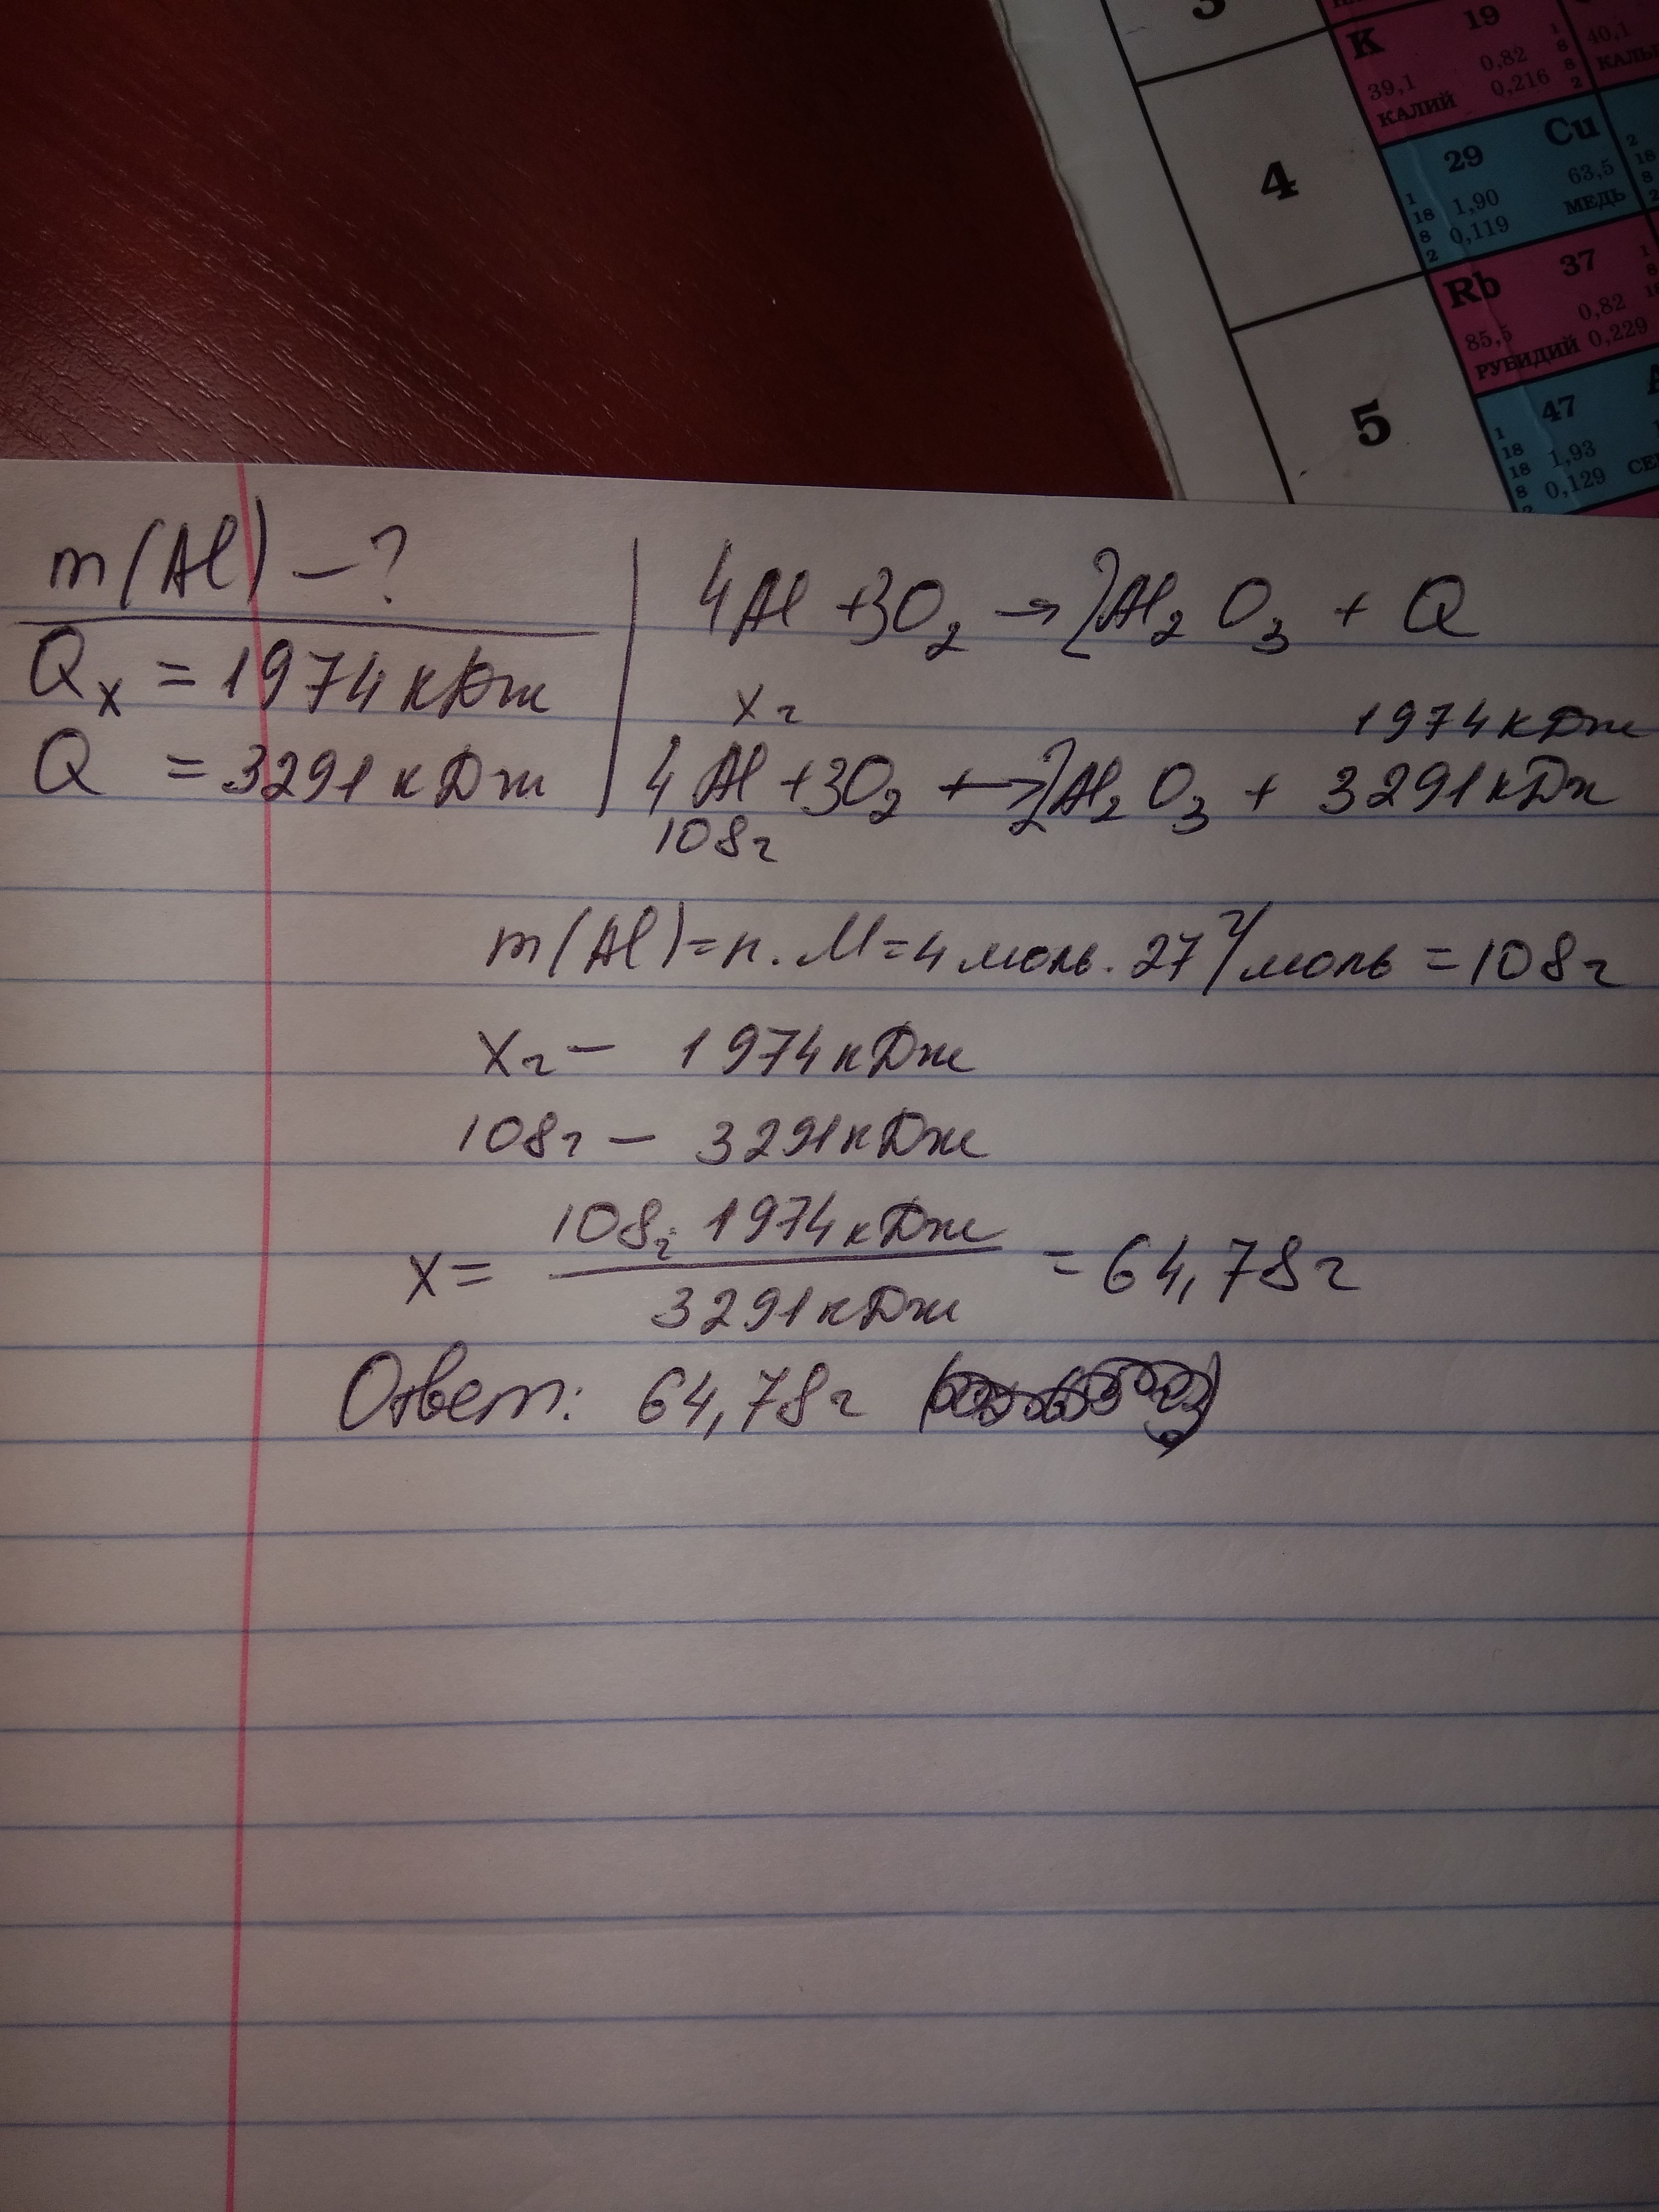 3
К 19
39,1 0,82
КАЛИЙ 0,216
1
8
8
2
40,1
КАЛЬ
4
29 Cu
1 18 8 2
1,90 63,5
0,119 МЕДЬ
5
Rb 37
85,5 0,82
РУБИДИЙ 0,229
47
1 18 18 8
1,93
0,129
m(Al) – ?
Qx = 1974 кДж
Q = 3291 кДж
4Al + 3O2 → 2Al2O3 + Q
x г 1974 кДж
4Al + 3O2 → 2Al2O3 + 3291 кДж
108 г
m(Al) = n · M = 4 моль · 27 г/моль = 108 г
x г – 1974 кДж
108 г – 3291 кДж
x = 108 г · 1974 кДж / 3291 кДж = 64,78 г
Ответ: 64,78 г